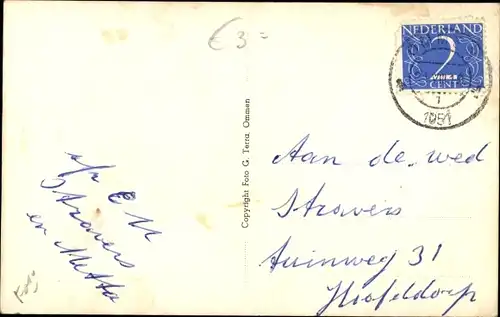 € 3=
NEDERLAND
2
CENT
1
1951
Copyright Foto G. Terra, Ommen
Aan de wed
Stravers
tuinweg 31
Hoofddorp
a/z E M
Stravers
en Metta